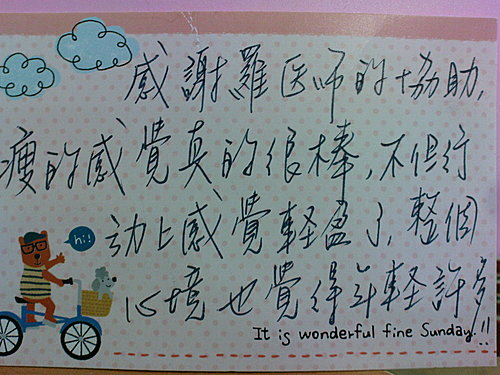 感謝羅医师的協助,
瘦的感覺真的很棒,不但行
动上感覺輕盈了,整個
心境也覺得年輕許多!!
hi!
It is wonderful fine Sunday.